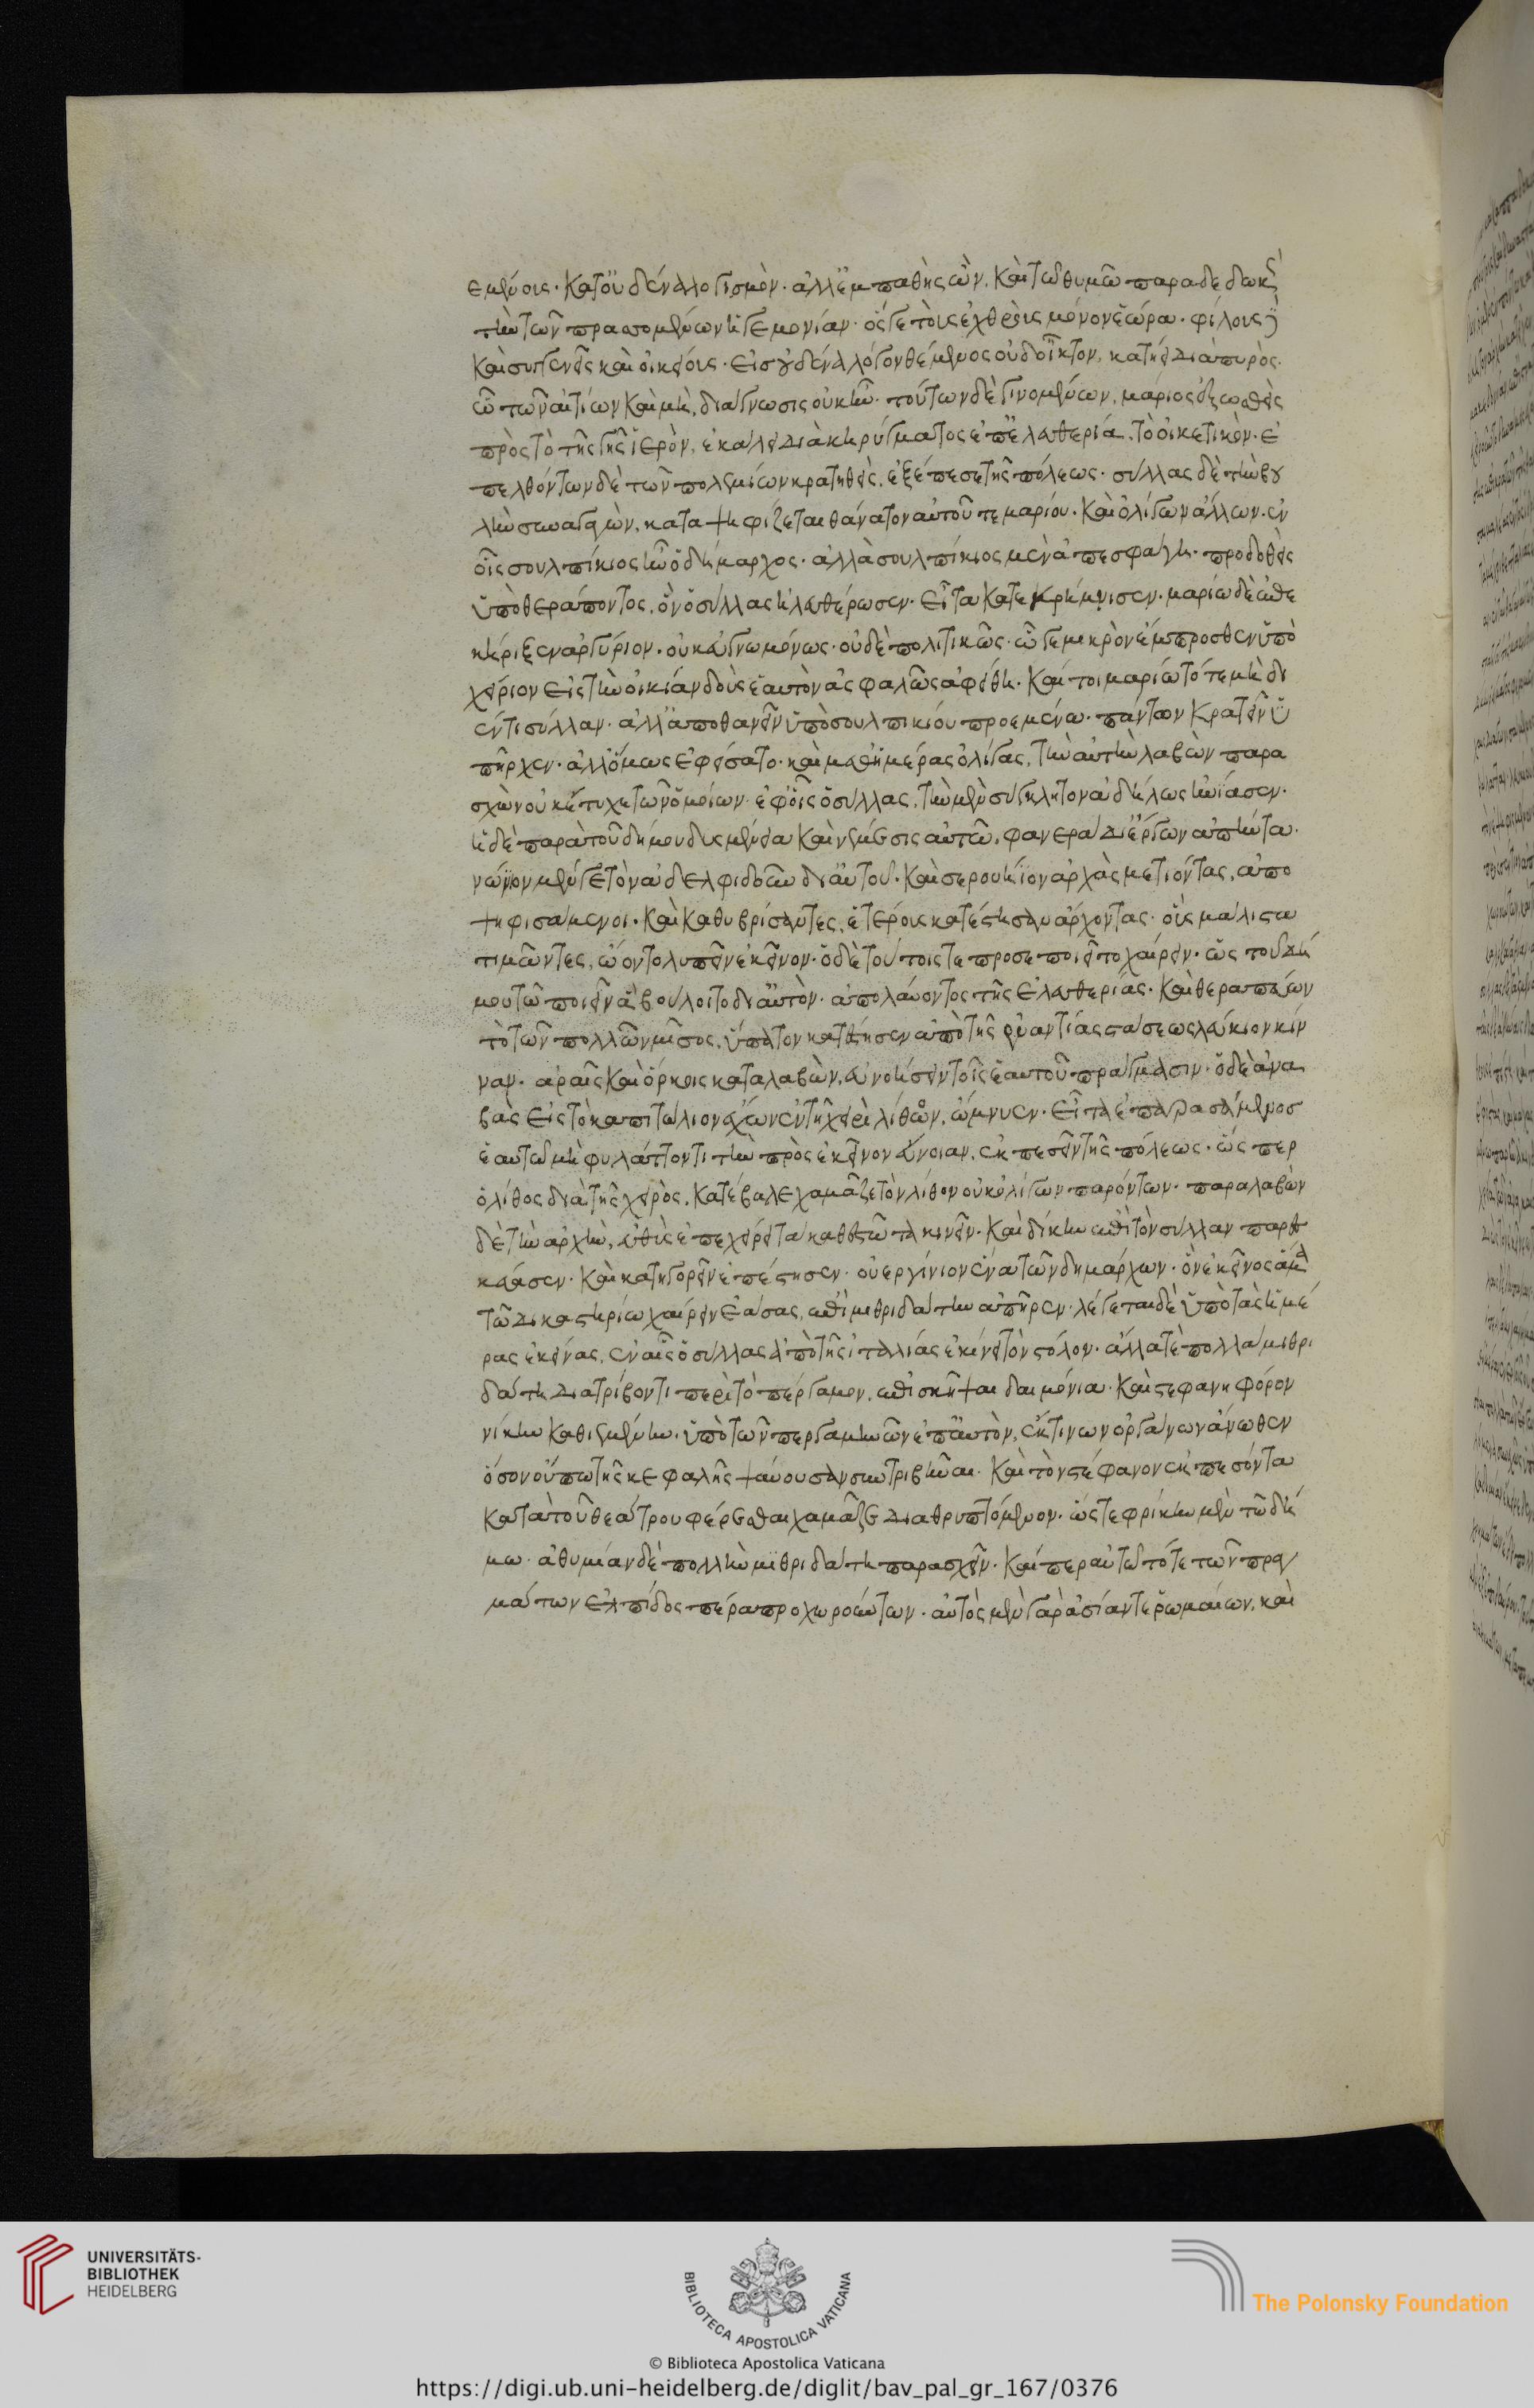 εμένοις· κατ' οὐδένα λογισμὸν· ἀλλ' ἐμπαθὴς ὢν, καὶ τῷ θυμῷ παραδεδωκὼς
τὴν τῶν πρασσομένων ἡγεμονίαν· ὅς γε τοὺς ἐχθροὺς μόνον ἑώρα· φίλους δὲ
καὶ συγγενεῖς καὶ οἰκείους· εἰς οὐδένα λόγον θέμενος οὐδ' οἶκτον, κατῄει διὰ πυρὸς·
ᾧ τῶν αἰτίων καὶ μὴ, διάγνωσις οὐκ ἦν· τούτων δὲ γινομένων, μάριος ἐξωσθεὶς
πρὸς τὸ τῆς γῆς ἱερὸν, ἐκάλει διὰ κηρύγματος ἐπ' ἐλευθερία, τὸ οἰκετικὸν· ἐ
πελθόντων δὲ τῶν πολεμίων κρατηθεὶς, ἐξέπεσε τῆς πόλεως· σύλλας δὲ τὴν βου
λὴν συναγαγὼν, καταψηφίζεται θάνατον αὐτοῦ τε μαρίου· καὶ ὀλίγων ἄλλων· ἐν
οἷς σουλπίκιος ἦν ὁ δήμαρχος· ἀλλὰ σουλπίκιος μὲν ἀπεσφάγη· προδοθεὶς
ὑπὸ θεράποντος, ὃν ὁ σύλλας ἠλευθέρωσεν· εἶτα κατεκρήμνισεν· μαρίω δ' ἐπε
κήρυξεν ἀργύριον· οὐκ εὐγνωμόνως· οὐδὲ πολιτικῶς· ᾧ γε μικρὸν ἔμπροσθεν ὑπο
χείριον εἰς τὴν οἰκίαν δοὺς ἑαυτὸν ἀσφαλῶς ἀφείθη· καί τοι μαρίω τότε μὴ δι
έντι σύλλαν· ἀλλ' ἀποθανεῖν ὑπὸ σουλπικίου προεμένω· πάντων κρατεῖν ὑ
πῆρχεν· ἀλλ' ὅμως ἐφείσατο· καὶ μεθ' ἡμέρας ὀλίγας, τὴν αὐτὴν λαβὴν παρα
σχὼν οὐκ ἔτυχε τῶν ὁμοίων· ἐφ' οἷς ὁ σύλλας, τὴν μὲν σύγκλητον ἀδήλως ἠνίασεν·
ἡ δὲ παρὰ τοῦ δήμου δυσμένεια καὶ νέμεσις αὐτῷ, φανερὰ δι' ἔργων ἀπήντα·
νώνιον μέν γε τὸν ἀδελφιδοῦν αὐτοῦ· καὶ σερουήϊον ἀρχὰς μετιόντας, ἀπο
ψηφισάμενοι· καὶ καθυβρίσαντες, ἑτέρους κατέστησαν ἄρχοντας· οὓς μάλιστα
τιμῶντες, ᾤοντο λυπεῖν ἐκεῖνον· ὁ δὲ τούτοις τε προσεποιεῖτο χαίρειν· ὡς τοῦ δή
μου τῷ ποιεῖν ἃ βούλοιτο δι' αὐτὸν· ἀπολαύοντος τῆς ἐλευθερίας· καὶ θεραπεύων
τὸ τῶν πολλῶν μῖσος, ὕπατον κατέστησεν ἀπὸ τῆς ἐναντίας στάσεως λεύκιον κίν
ναν· ἀραῖς καὶ ὅρκοις καταλαβὼν, εὐνοήσειν τοῖς ἑαυτοῦ πράγμασιν· ὁ δὲ ἀνα
βὰς εἰς τὸ καπιτώλιον ἔχων ἐν τῇ χειρὶ λίθον, ὤμνυεν· εἶτα ἐπαρασάμενος
ἑαυτῷ μὴ φυλάττοντι τὴν πρὸς ἐκεῖνον εὔνοιαν, ἐκπεσεῖν τῆς πόλεως· ὥσπερ
ὁ λίθος διὰ τῆς χειρὸς, κατέβαλε χαμᾶζε τὸν λίθον οὐκ ὀλίγων παρόντων· παραλαβὼν
δὲ τὴν ἀρχὴν, εὐθὺς ἐπεχείρει τὰ καθεστῶτα κινεῖν· καὶ δίκην ἐπὶ τὸν σύλλαν παρε
σκεύασεν· καὶ κατηγορεῖν ἐπέστησεν· οὐεργίνιον ἕνα τῶν δημάρχων· ὃν ἐκεῖνος ἅμα
τῷ δικαστηρίω χαίρειν ἐάσας, ἐπὶ μιθριδάτην ἀπῆρεν· λέγεται δὲ ὑπὸ τὰς ἡμέ
ρας ἐκείνας, ἐν αἷς ὁ σύλλας ἀπὸ τῆς ἰταλίας ἐκίνει τὸν στόλον· ἄλλα τε πολλὰ μιθρι
δάτη διατρίβοντι περὶ τὸ πέργαμον, ἐπισκῆψαι δαιμόνια· καὶ στεφανηφόρον
νίκην καθιεμένην· ὑπὸ τῶν περγαμηνῶν ἐπ' αὐτὸν, ἔκ τινων ὀργάνων ἄνωθεν
ὅσον οὔπω τῆς κεφαλῆς ψαύουσαν συντριβῆναι· καὶ τὸν στέφανον ἐκπεσόντα
κατὰ τοῦ θεάτρου φέρεσθαι χαμᾶζε διαθρυπτόμενον· ὥστε φρίκην μὲν τῷ δή
μω· ἀθυμίαν δὲ πολλὴν μιθριδάτη παρασχεῖν· καίπερ αὐτῷ τότε τῶν πραγ
μάτων ἐλπίδος πέρα προχωρούντων· αὐτὸς μὲν γὰρ ἀσίαν τε ῥωμαίων, καὶ
UNIVERSITÄTS-
BIBLIOTHEK
HEIDELBERG
BIBLIOTECA APOSTOLICA VATICANA
The Polonsky Foundation
© Biblioteca Apostolica Vaticana
https://digi.ub.uni-heidelberg.de/diglit/bav_pal_gr_167/0376